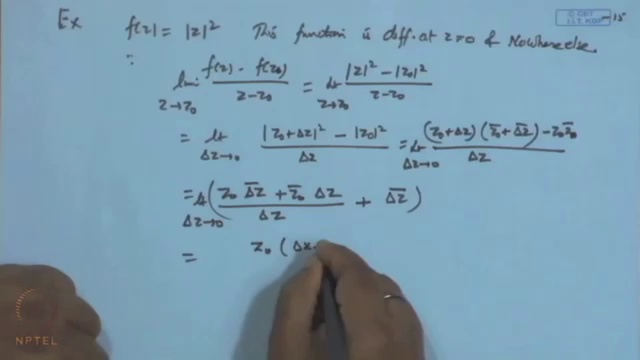 Ex f(z) = |z|² This function is diff. at z=0 & Nowhere else.
∵ lim_{z→z₀} (f(z) - f(z₀))/(z-z₀) = lt_{z→z₀} (|z|² - |z₀|²)/(z-z₀)
= lt_{Δz→0} (|z₀+Δz|² - |z₀|²)/Δz = lt_{Δz→0} ((z₀+Δz)(z̄₀+Δ̄z̄) - z₀z̄₀)/Δz
= lt_{Δz→0} ((z₀ Δ̄z̄ + z̄₀ Δz)/Δz + Δ̄z̄)
= z₀ (Δx
NPTEL